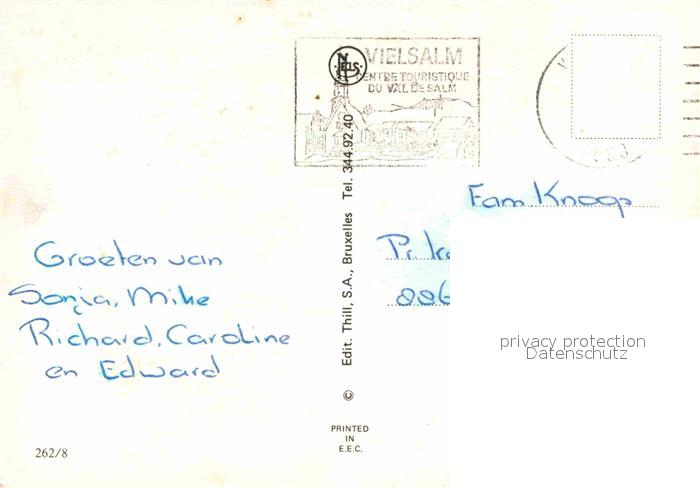 VIELSALM
CENTRE TOURISTIQUE
DU VAL DE SALM
NELS
Fam. Knoop
Groeten van
Sonja, Mike
Richard, Caroline
en Edward
© Edit. Thill, S.A., Bruxelles Tel. 344.92.40
privacy protection
Datenschutz
PRINTED
IN
E.E.C.
262/8